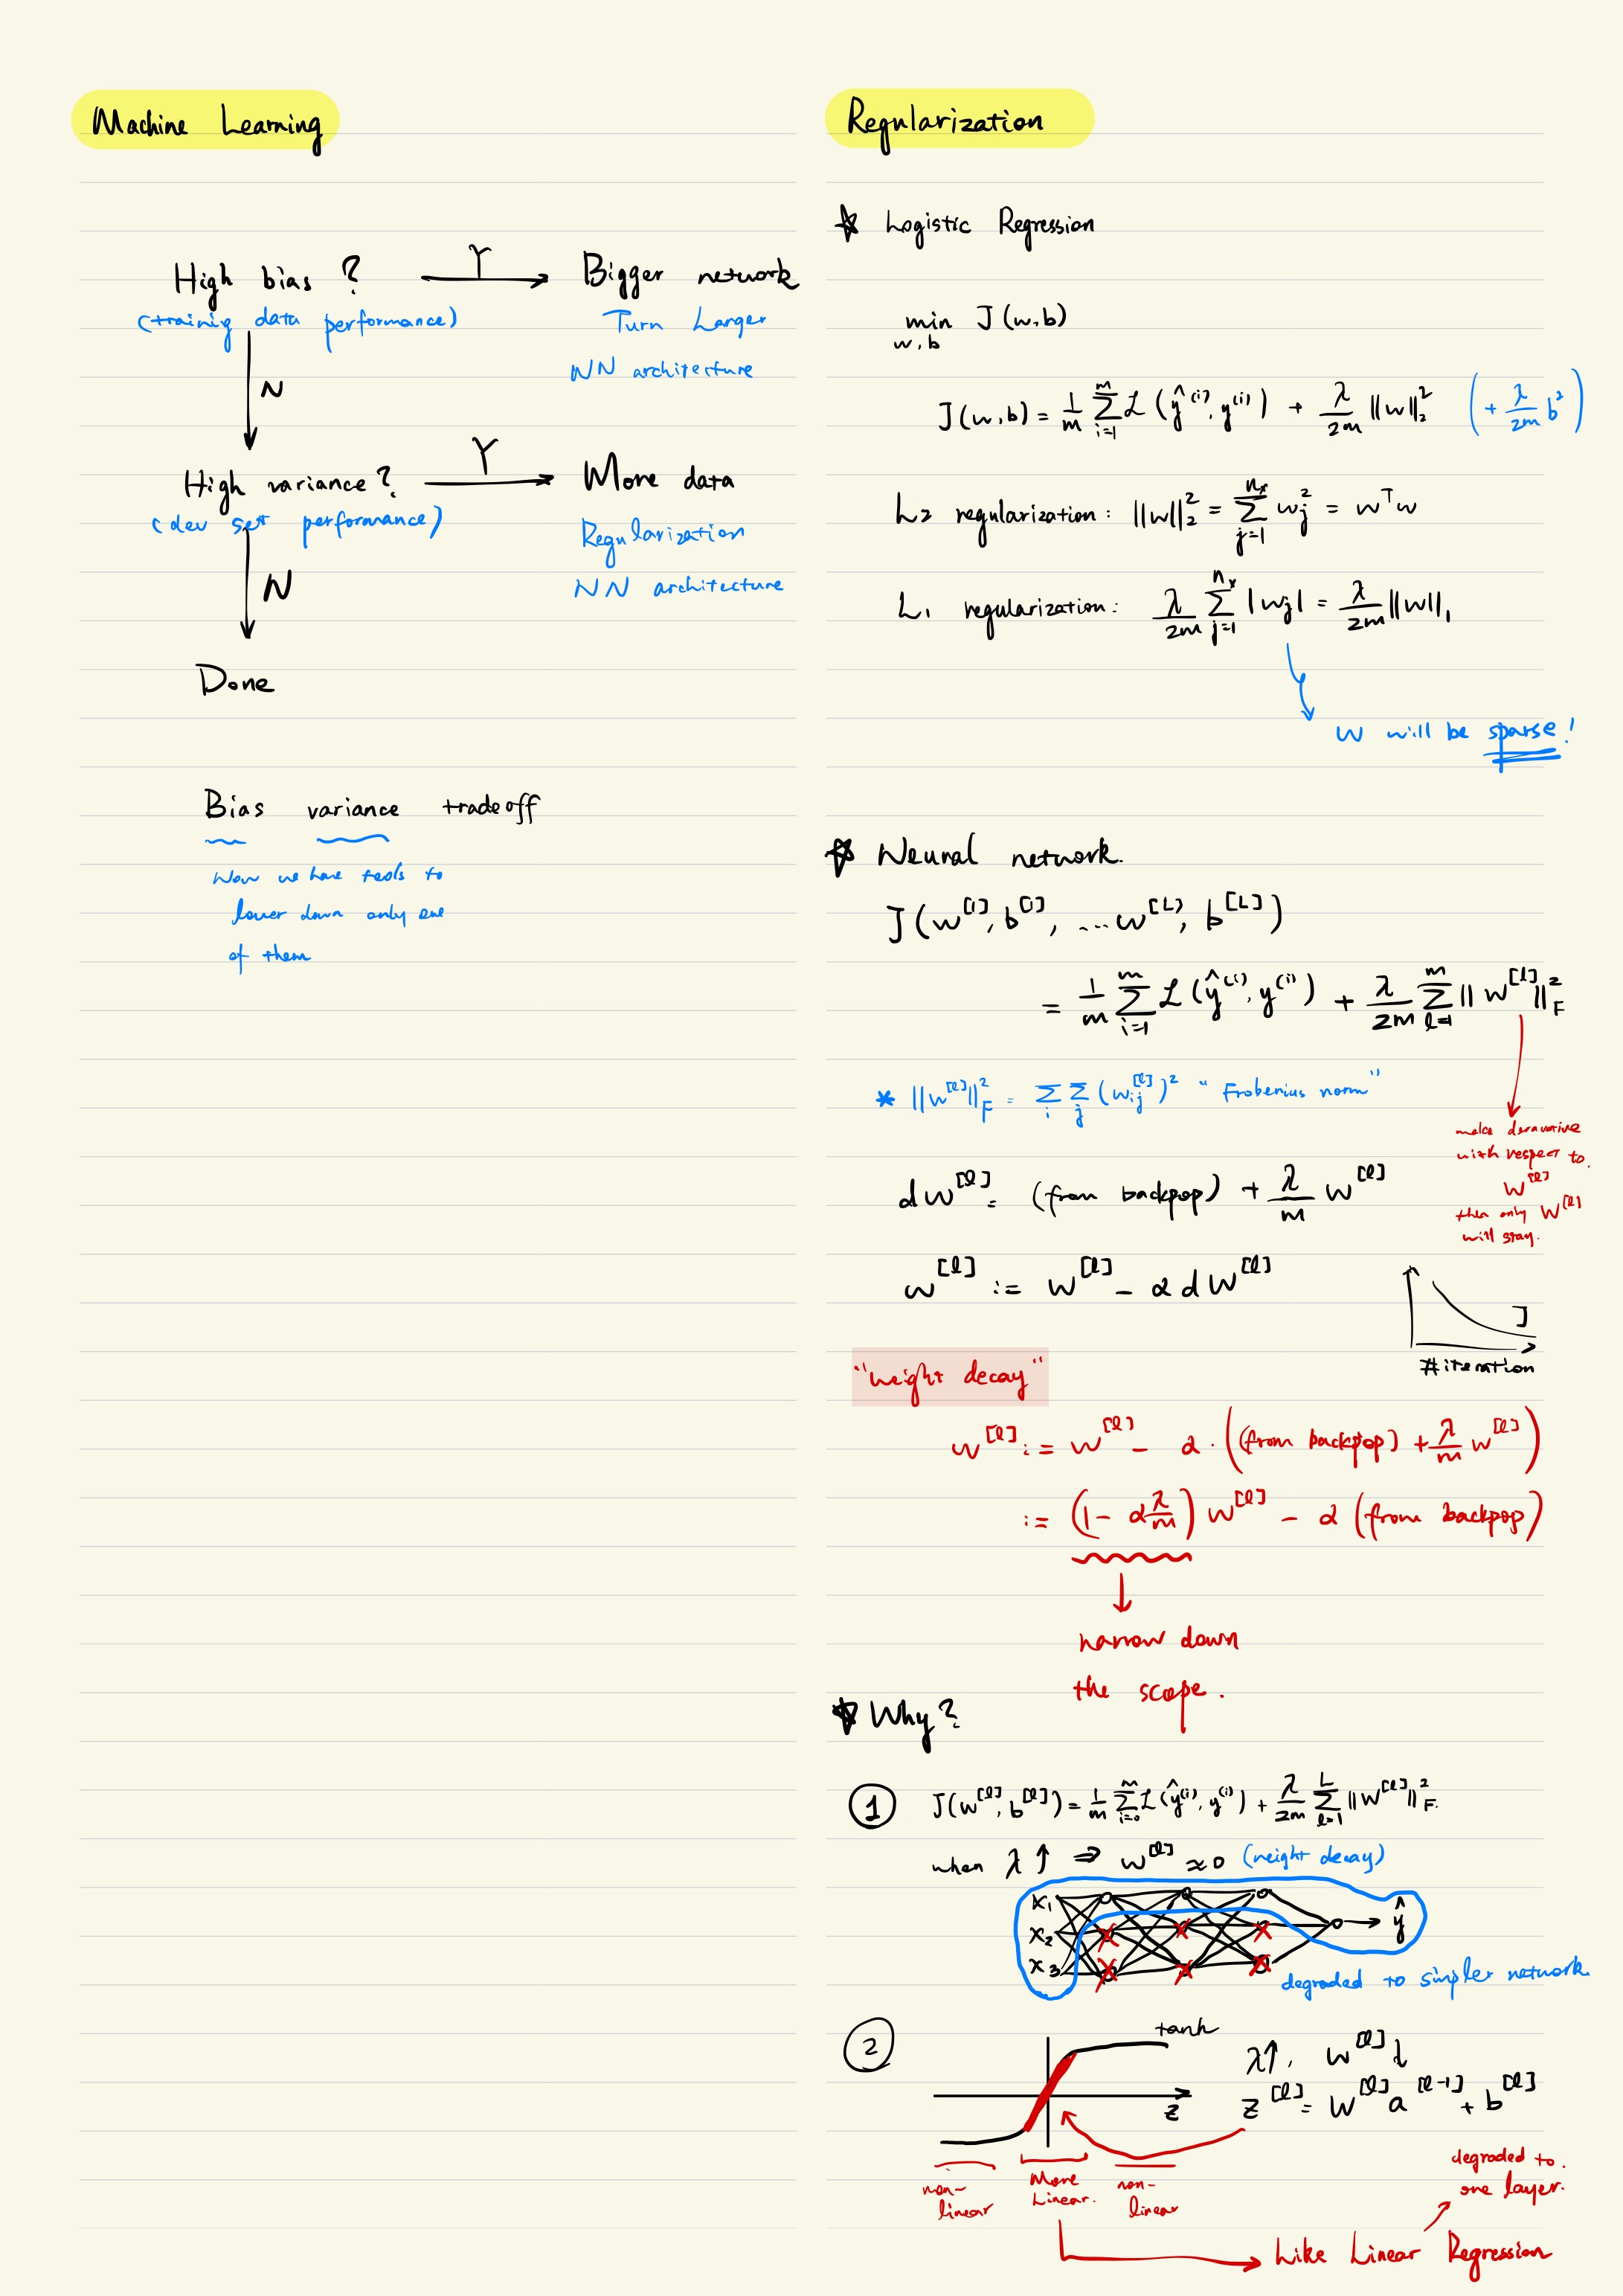 Machine Learning
High bias ? Y Bigger network
(training data performance) Turn Larger
NN architecture
N
High variance ? Y More data
(dev set performance) Regularization
NN architecture
N
Done
Bias variance tradeoff
Now we have tools to
lower down only one
of them
Regularization
☆ Logistic Regression
min J(w,b)
w,b
J(w,b) = 1/m Σ_{i=1}^{m} ℒ(ŷ^(i), y^(i)) + λ/2m ||w||₂² (+ λ/2m b²)
L2 regularization: ||w||₂² = Σ_{j=1}^{nx} w_j² = wᵀw
L1 regularization: λ/2m Σ_{j=1}^{nx} |w_j| = λ/2m ||w||₁
w will be sparse!
☆ Neural network.
J(w^[1], b^[1], ... w^[L], b^[L])
= 1/m Σ_{i=1}^{m} ℒ(ŷ^(i), y^(i)) + λ/2m Σ_{l=1}^{m} ||w^[l]||_F²
* ||w^[l]||_F² = Σ_i Σ_j (w_ij^[l])² "Frobenius norm"
make deravative
with respect to.
W^[l]
then only W^[l]
will stay.
dw^[l] = (from backpop) + λ/m w^[l]
w^[l] := w^[l] - α dW^[l]
J
#iteration
"weight decay"
w^[l] := w^[l] - α · ((from backpop) + λ/m w^[l])
:= (1 - α λ/m) w^[l] - α (from backpop)
narrow down
the scope.
☆ Why?
① J(w^[l], b^[l]) = 1/m Σ_{i=0}^{m} ℒ(ŷ^(i), y^(i)) + λ/2m Σ_{l=1}^{L} ||W^[l]||_F².
when λ ↑ ⇒ w^[l] ≈ 0 (weight decay)
x1
x2 ŷ
x3
degraded to simpler network
② tanh
λ↑, w^[l] ↓
z z^[l] = W^[l] a^[l-1] + b^[l]
non-
linear
More
Linear.
non-
linear
degraded to.
one layer.
Like Linear Regression